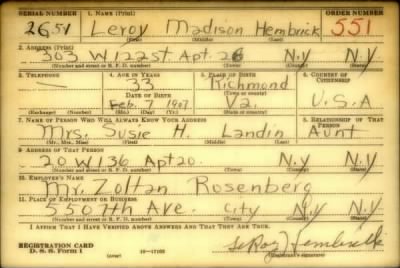 SERIAL NUMBER 1. NAME (Print) ORDER NUMBER
2651 Leroy Madison Hembrick 551
(First) (Middle) (Last)
2. ADDRESS (Print)
303 W 122 st. Apt. 26 N.Y N.Y
(Number and street or R. F. D. number) (Town) (County) (State)
3. TELEPHONE 4. AGE IN YEARS 5. PLACE OF BIRTH 6. COUNTRY OF CITIZENSHIP
33 Richmond
DATE OF BIRTH (Town or county)
Feb. 7 1907 Va. U.S.A
(Exchange) (Number) (Mo.) (Day) (Yr.) (State or country)
7. NAME OF PERSON WHO WILL ALWAYS KNOW YOUR ADDRESS 8. RELATIONSHIP OF THAT PERSON
Mrs. Susie H. Landin Aunt
(Mr., Mrs., Miss) (First) (Middle) (Last)
9. ADDRESS OF THAT PERSON
20 W 136 Apt 20. N.Y N.Y
(Number and street or R. F. D. number) (Town) (County) (State)
10. EMPLOYER'S NAME
Mr. Zoltan Rosenberg
11. PLACE OF EMPLOYMENT OR BUSINESS
550 7th Ave. City N.Y N.Y
(Number and street or R. F. D. number) (Town) (County) (State)
I AFFIRM THAT I HAVE VERIFIED ABOVE ANSWERS AND THAT THEY ARE TRUE.
REGISTRATION CARD
D. S. S. Form 1 (over) 16—17105 LeRoy Hembrick
(Registrant's signature)